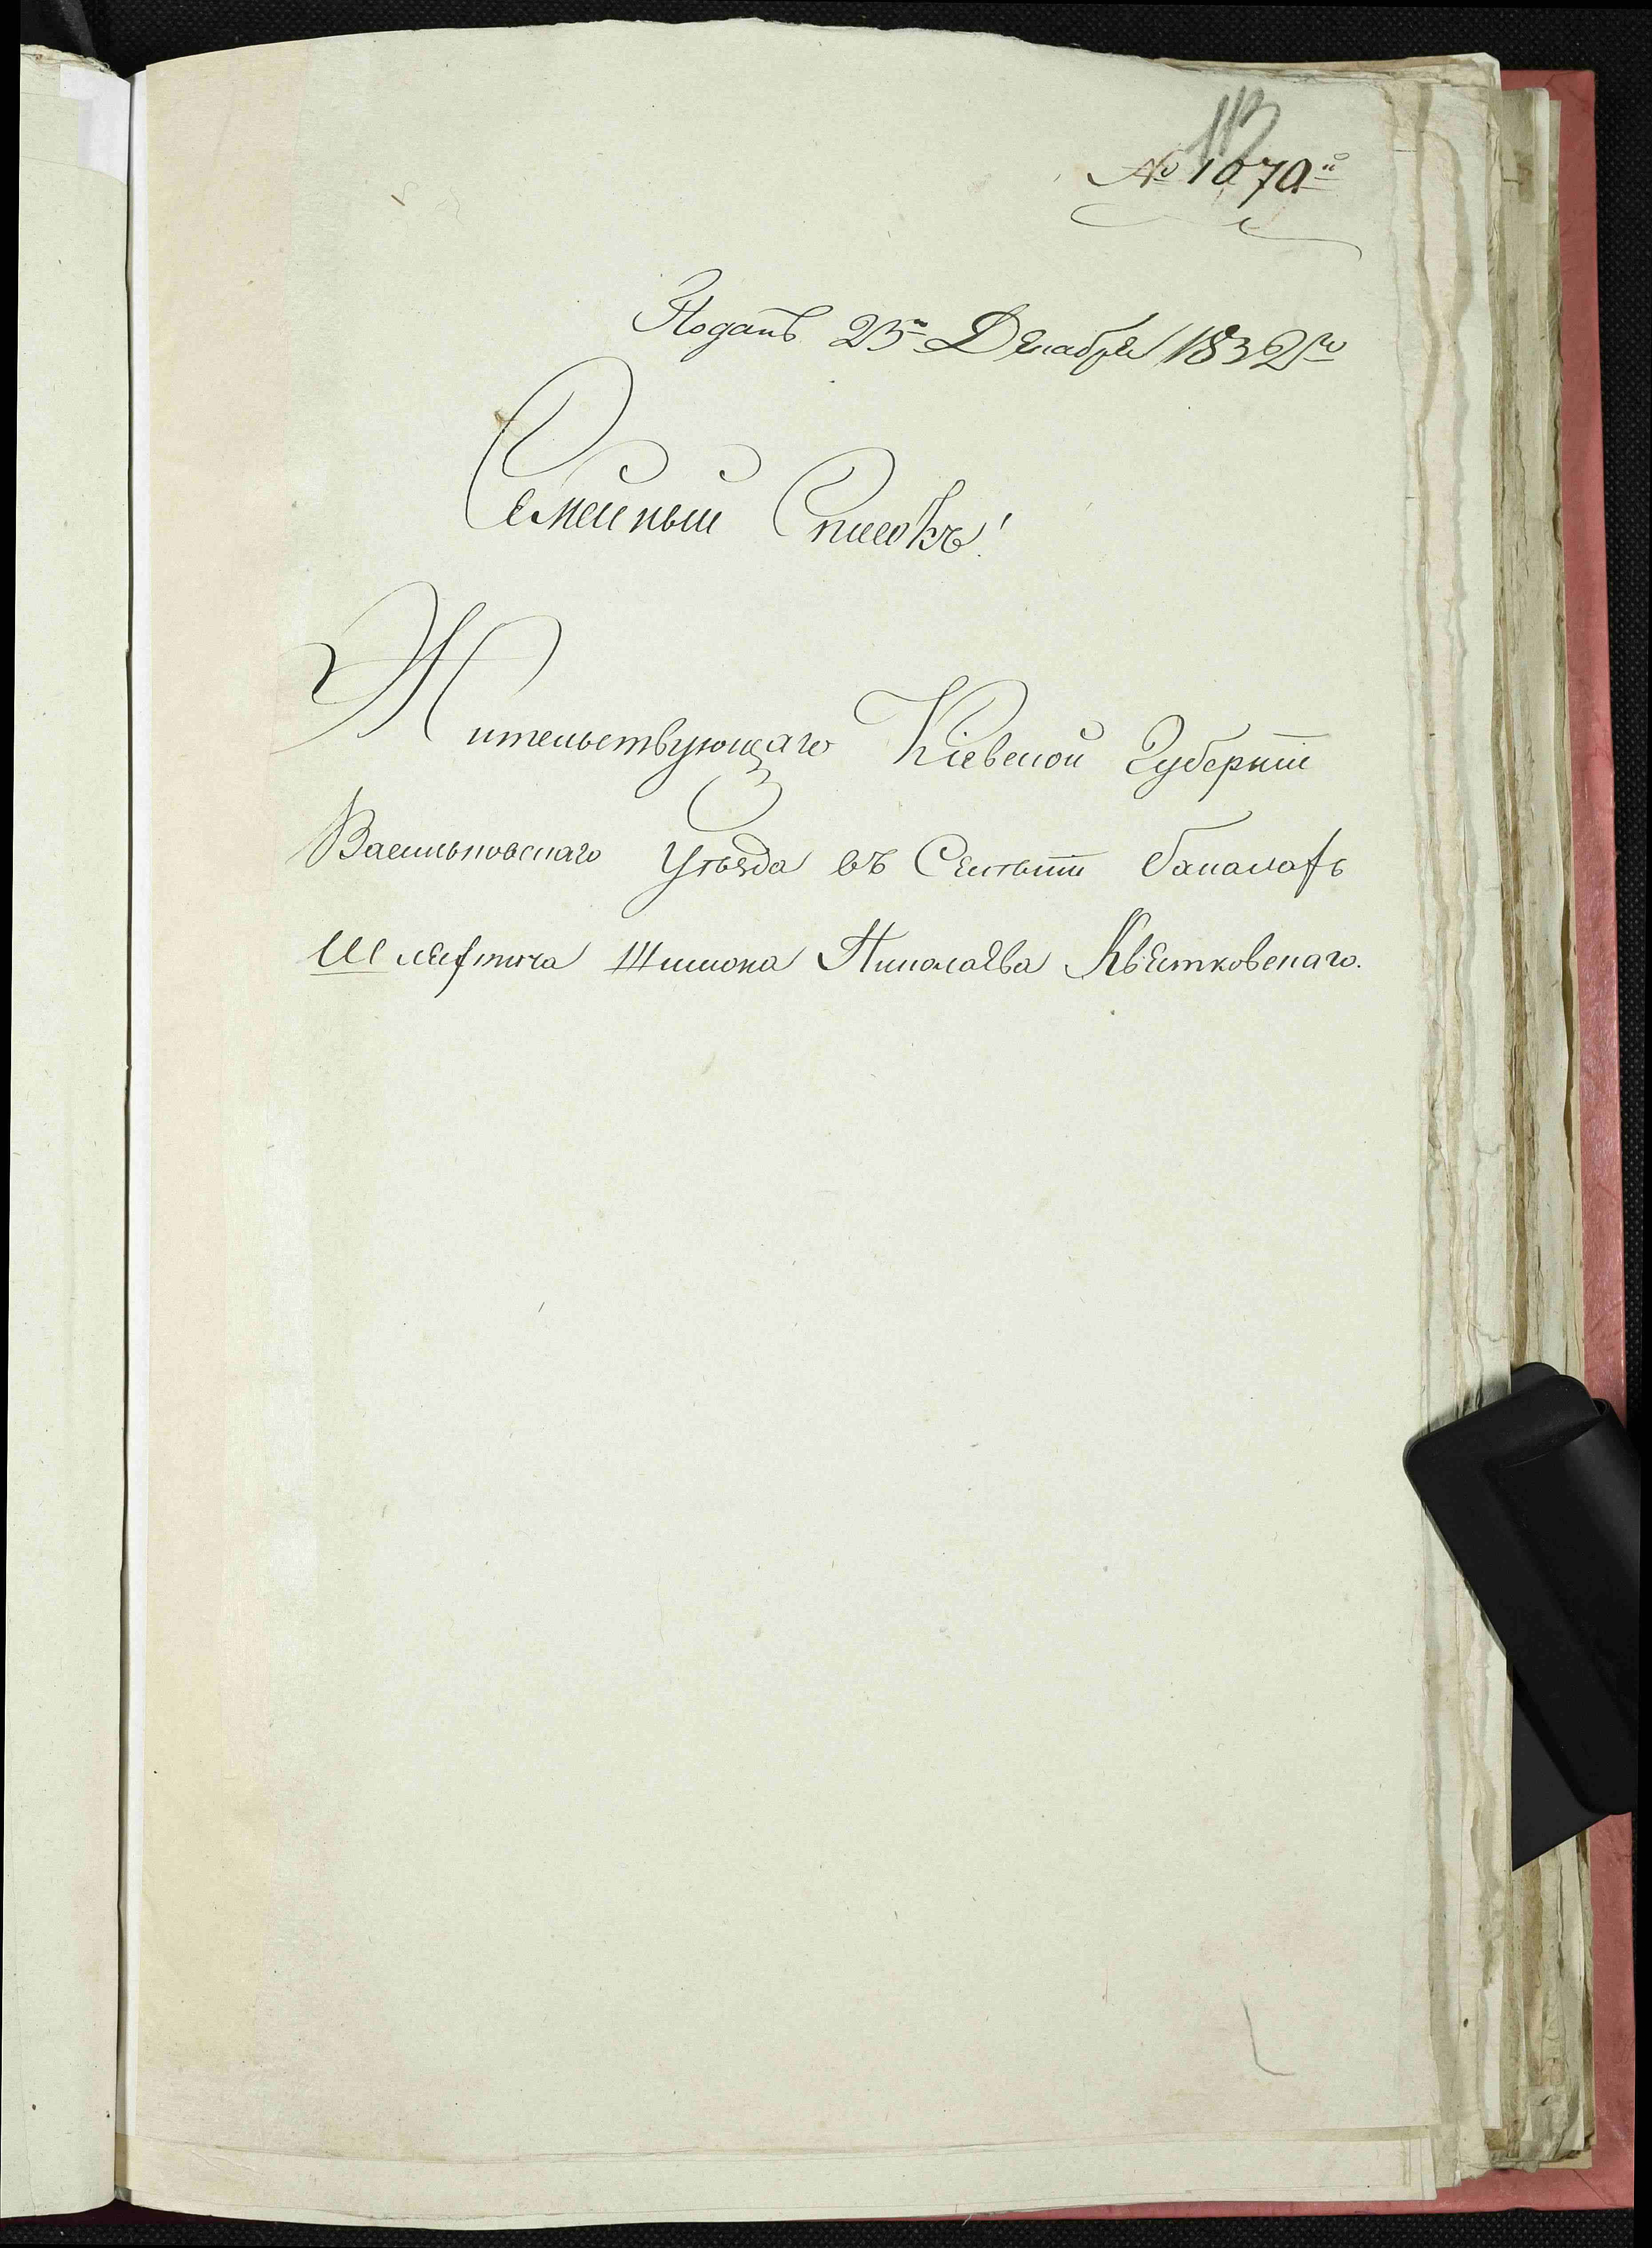 113
№ 1070й
Поданъ 23го Декабря 1832го
Семейный Списокъ!
Жительствующаго Кіевской Губерніи
Васильковскаго Уѣзда въ Селѣніи
Шляхтича Шимона Николаева Квѣтковскаго.